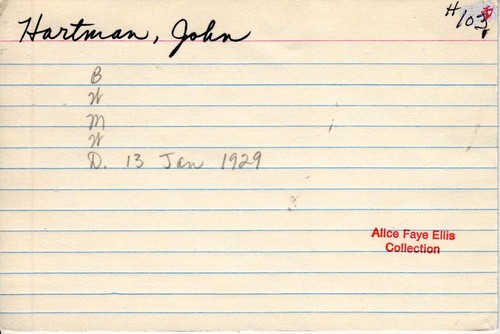 Hartman, John
H
103
B
W
M
W
D. 13 Jan 1929
Alice Faye Ellis
Collection